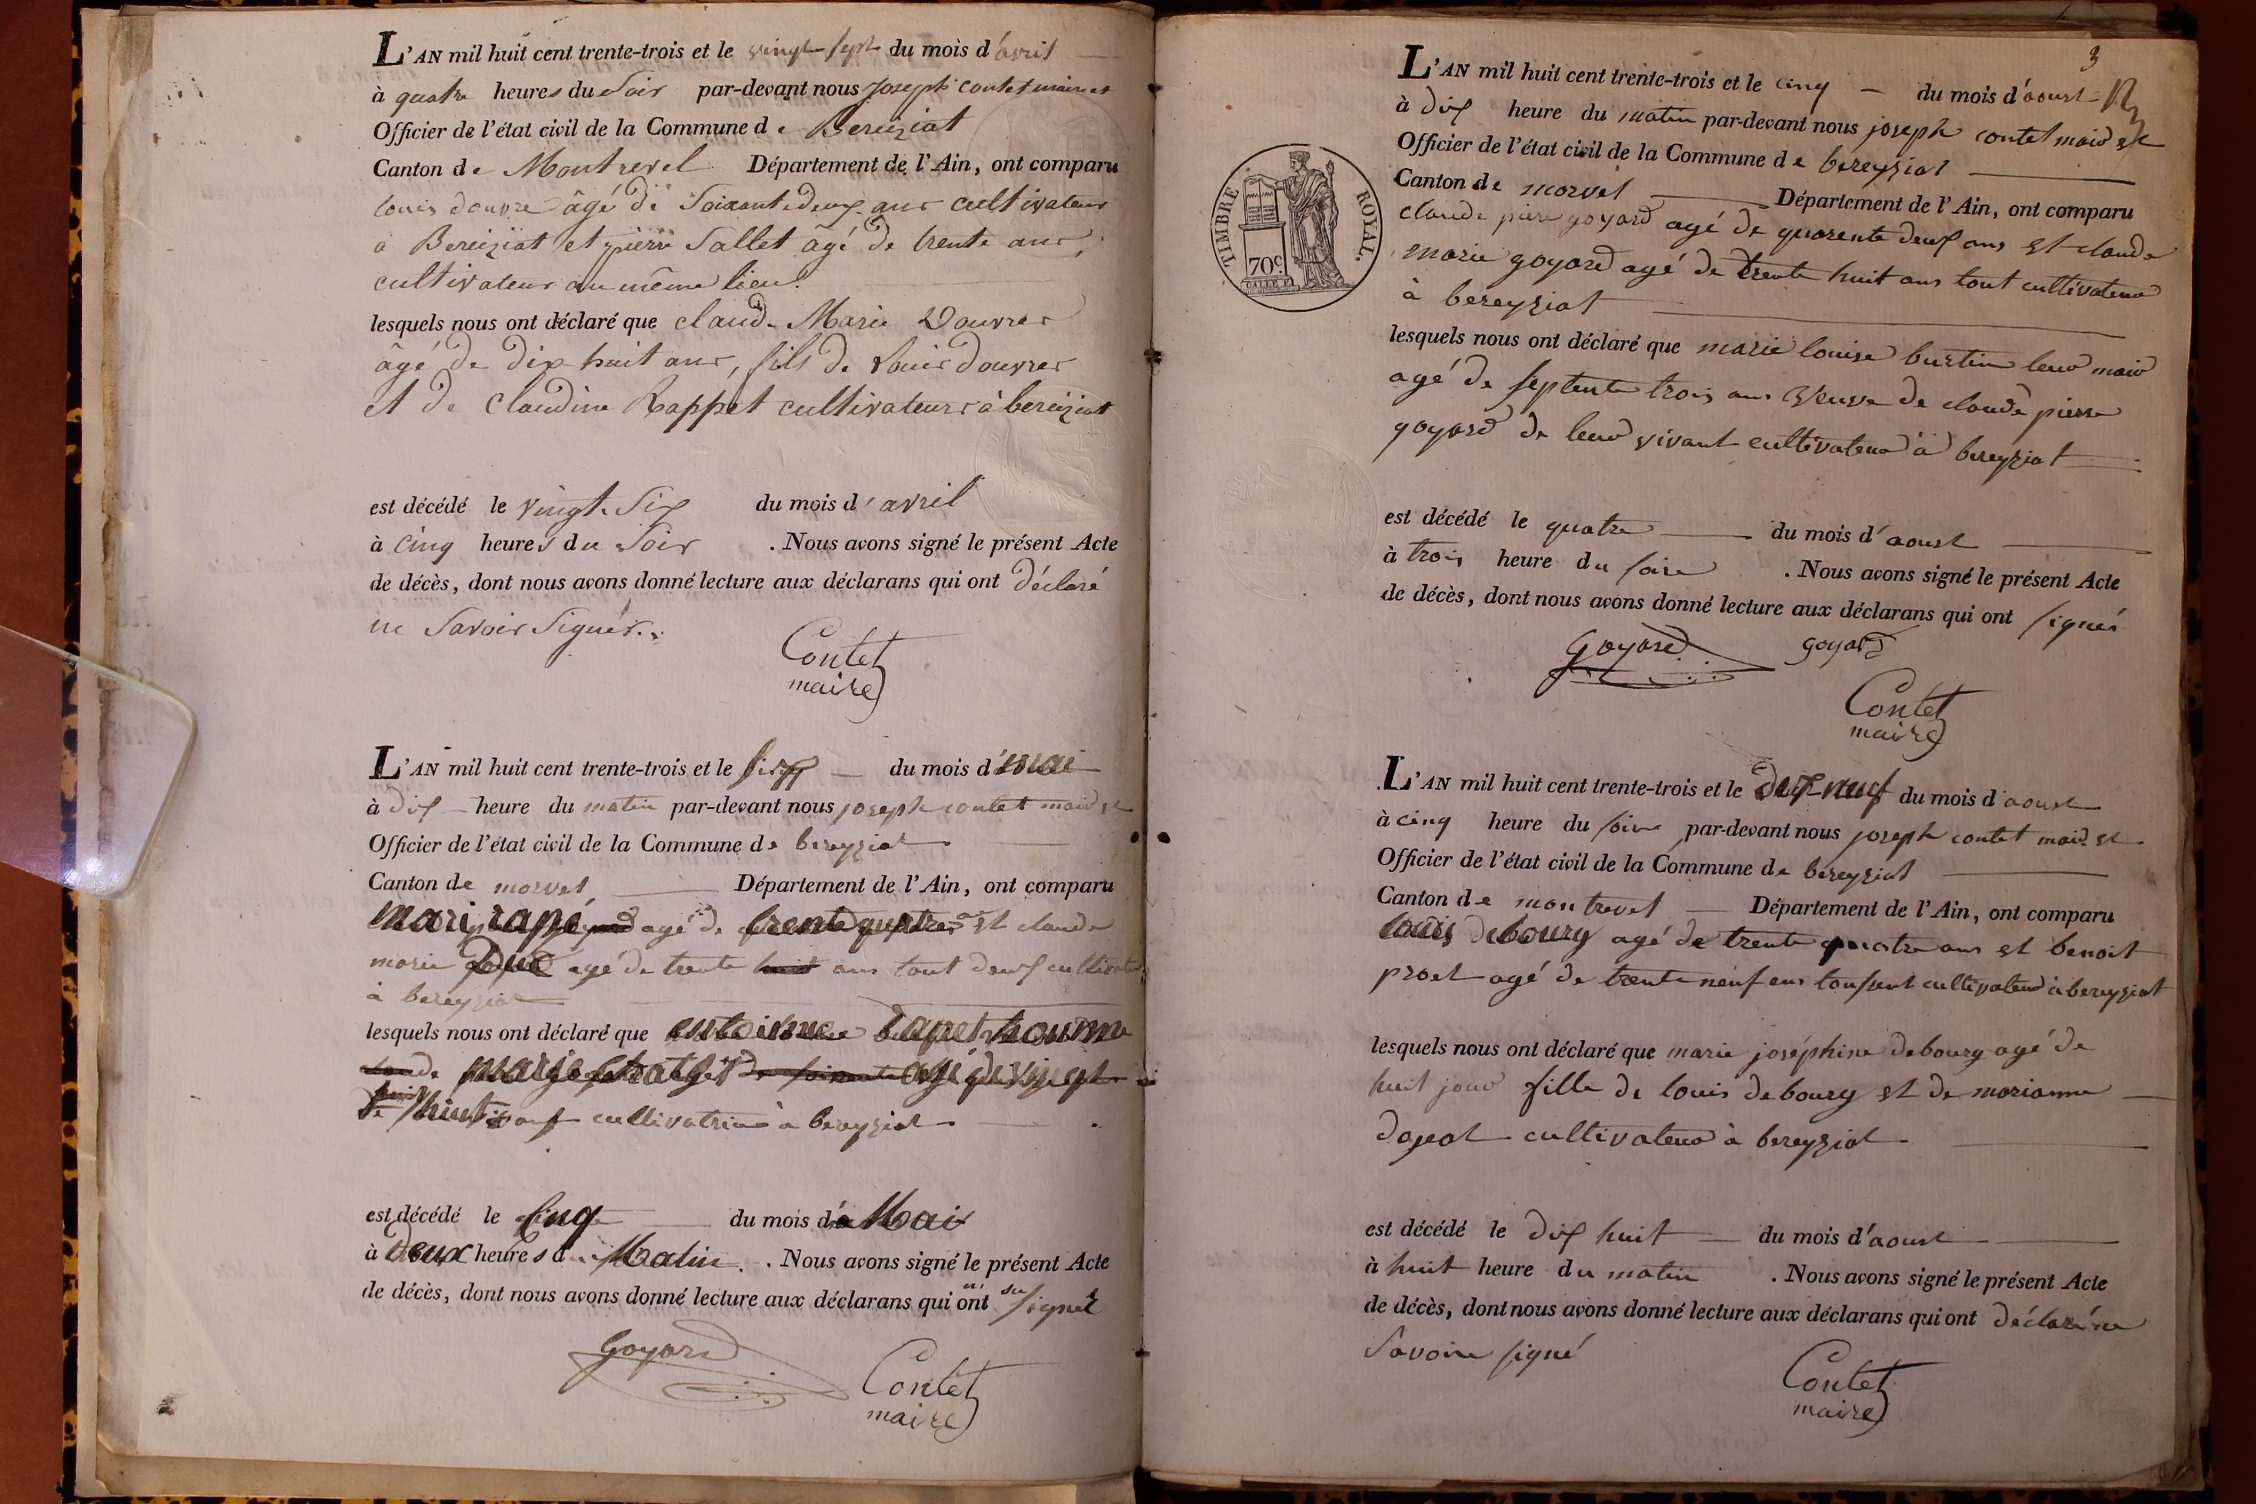 L'AN mil huit cent trente-trois et le vingt sept du mois d'avril
à quatre heures du Soir par-devant nous Joseph contet maire et
Officier de l'état civil de la Commune de Bereiziat
Canton de Montrevel Département de l'Ain, ont comparu
louis douvre âgé de Soixante deux ans cultivateur
a Bereiziat et pierre Sallet âgé de trente ans,
cultivateur au même lieu.
lesquels nous ont déclaré que claude Marie Douvres
âgé de dix huit ans, fils de Louis douvres
et de Claudine Rappet cultivateurs à bereiziat
est décédé le vingt-Six du mois d'avril
à Cinq heures du Soir . Nous avons signé le présent Acte
de décès, dont nous avons donné lecture aux déclarans qui ont déclaré
ne Savoir Signer.
Contet
maire
L'AN mil huit cent trente-trois et le du mois d'mai
à dix heure du matin par-devant nous joseph contet maire et
Officier de l'état civil de la Commune de bereyziat
Canton de morvel Département de l'Ain, ont comparu
mari rapé agé de trente quatre et claude
marie Duc agé de trente ans tout deux cultivateur
à bereyziat
lesquels nous ont déclaré que entoinne rapet
de marie agé de vingt
huit cultivatrice à bereyziat
est décédé le Cinq du mois de Mai
à Deux heures du Matin . Nous avons signé le présent Acte
de décès, dont nous avons donné lecture aux déclarans qui ont su signer
Goyard
Contet
maire
3
L'AN mil huit cent trente-trois et le cinq du mois d'aoust
à dix heure du matin par-devant nous joseph contet maire et
Officier de l'état civil de la Commune de bereyziat
TIMBRE ROYAL.
70c
Canton de morvel Département de l'Ain, ont comparu
claude piere goyard agé de quarente deux ans et claude
marie goyard agé de trente huit ans tout cultivateur
à bereyziat
lesquels nous ont déclaré que marie louise burtin leur mair
agé de septente trois ans veuve de claude pierre
goyard de leur vivant cultivateur à bereyziat
est décédé le quatre du mois d'aoust
à trois heure du soire . Nous avons signé le présent Acte
de décès, dont nous avons donné lecture aux déclarans qui ont signés
Goyard goyard
Contet
maire
L'AN mil huit cent trente-trois et le Dix neuf du mois d'aoust
à cinq heure du soire par-devant nous joseph contet maire et
Officier de l'état civil de la Commune de bereyziat
Canton de montrevel Département de l'Ain, ont comparu
louis debourg agé de trente quatre ans et benoit
proet agé de trente neuf ans cultivateur à bereyziat
lesquels nous ont déclaré que marie joséphine debourg agé de
huit jour fille de louis debourg et de marianne
cultivateur à bereyziat
est décédé le dix huit du mois d'aoust
à huit heure du matin . Nous avons signé le présent Acte
de décès, dont nous avons donné lecture aux déclarans qui ont déclaré ne
Savoire signé
Contet
maire